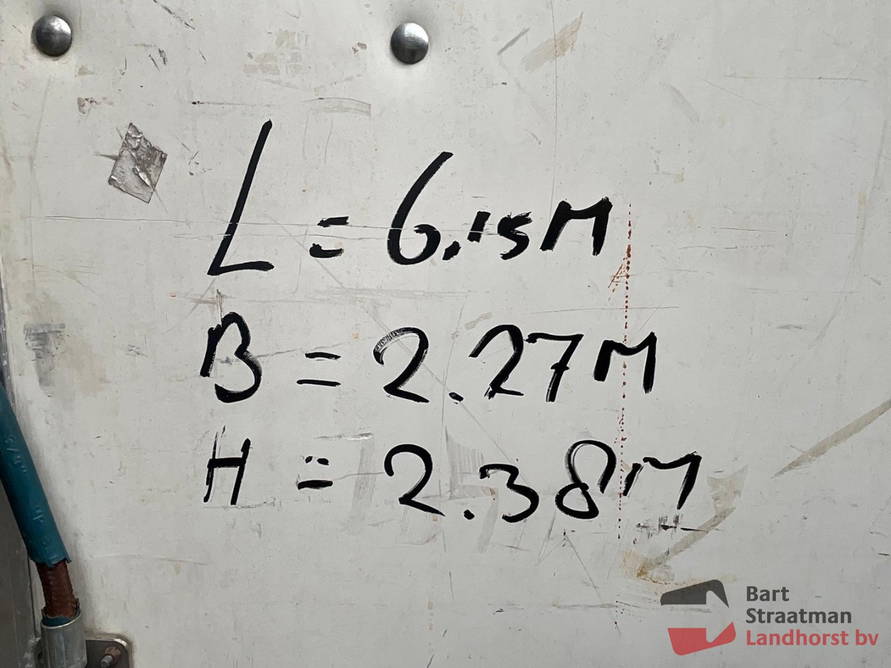 L = 6.15M
B = 2.27M
H = 2.38M
Bart
Straatman
Landhorst bv